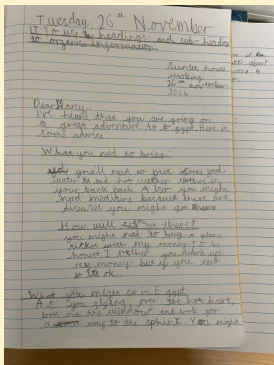 Tuesday, 26th November
LI To use headings and sub-heading
to organise information
Sunset house
Woking
26th november
2024
Dear Harry,
I've heard that you are going on
a great adventure to Egypt. here is
some advice.
What you need to bring:
you'll need to put some food
water and hot wether clothes in
your back pack Also you might
need medicine because there are
diseases you might get
How will get there?
you might need to buy a plane
ticket with my money To be
honest I rather you didnt use
my money but if you need
its ok..
What you might see in Egypt
As you flying over the hot desert,
look out the window and look for
a way to the sphinx. You might
about